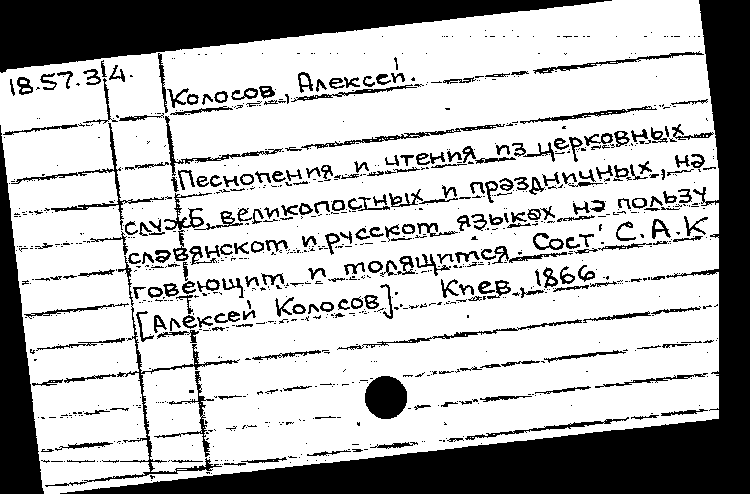 18.57.3.4.
Колосов, Алексей.
Песнопения и чтения из церковных
служб, великопостных и праздничных, на
славянском и русском языках на пользу
говеющим и молящимся. Сост. С.А.К
[Алексей Колосов]. Киев, 1866.